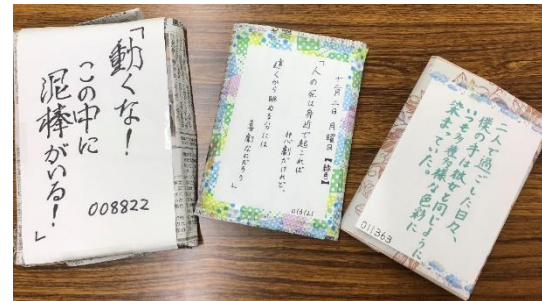 「動くな！
この中に
泥棒がいる！」
008822
十二月二日 月曜日【始き】
「人の死は身近で起これば
悲劇だけれど、
遠くから眺める分には
喜劇なんだろう」
二人で過ごした日々、
僕の手は彼女と同じように、
いつも多種多様な色彩に
染まっていた。
011363